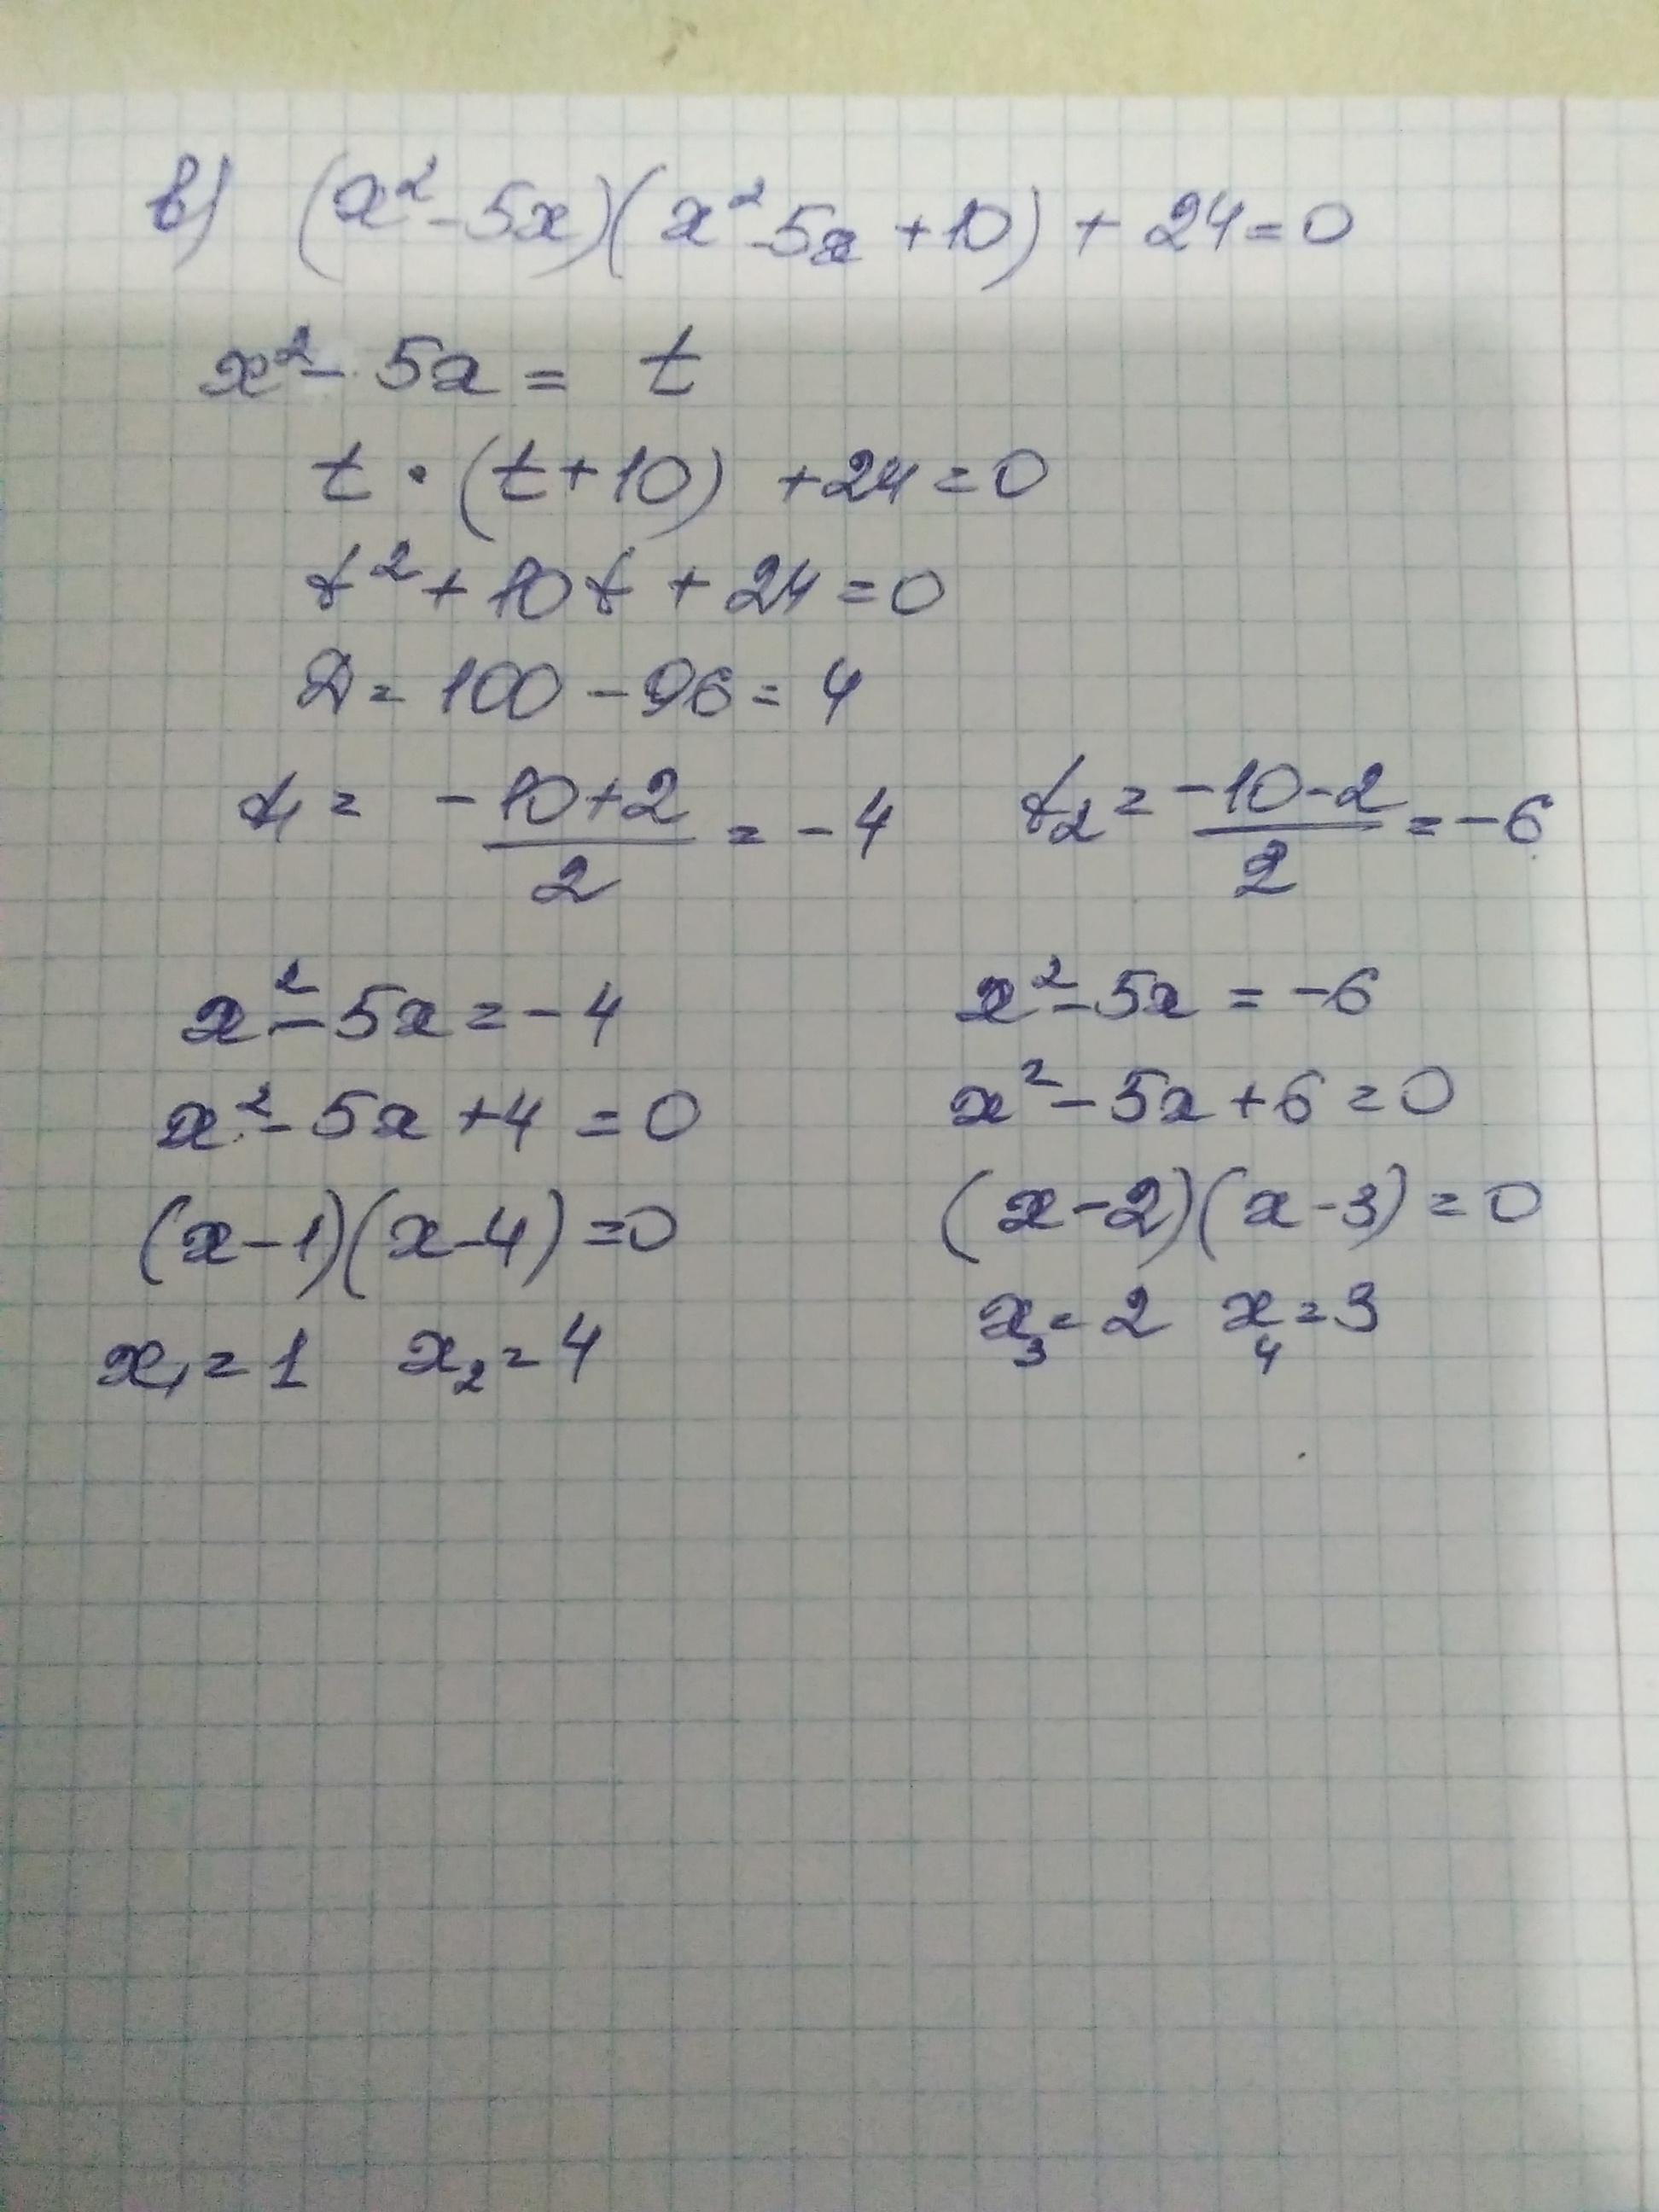 в) (x² - 5x)(x² - 5x + 10) + 24 = 0
x² - 5x = t
t · (t + 10) + 24 = 0
t² + 10t + 24 = 0
D = 100 - 96 = 4
t₁ = (-10 + 2)/2 = -4 t₂ = (-10 - 2)/2 = -6
x² - 5x = -4 x² - 5x = -6
x² - 5x + 4 = 0 x² - 5x + 6 = 0
(x - 1)(x - 4) = 0 (x - 2)(x - 3) = 0
x₁ = 1 x₂ = 4 x₃ = 2 x₄ = 3